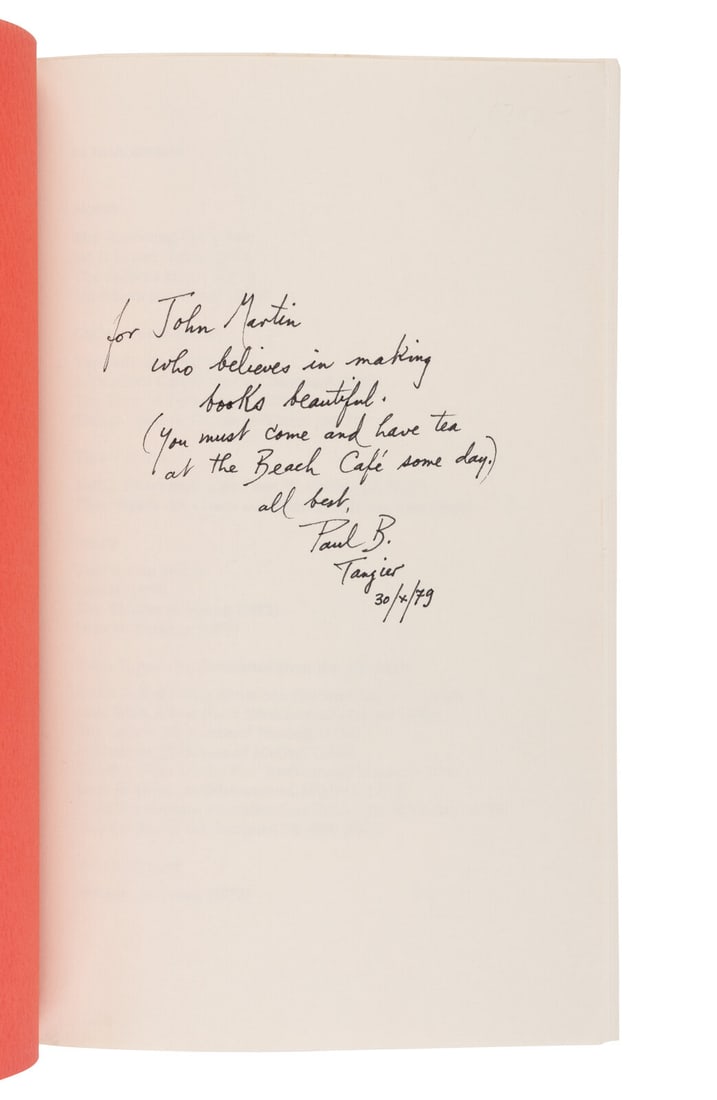 for John Martin
who believes in making
books beautiful.
(You must come and have tea
at the Beach Café some day.)
all best,
Paul B.
Tangier
30/x/79